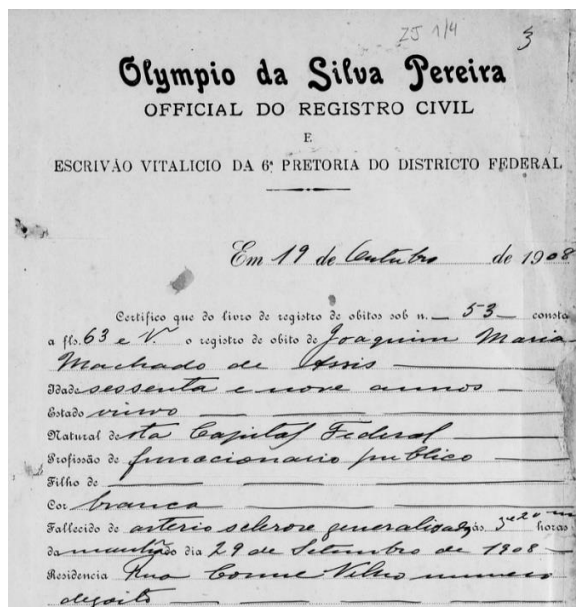 ZJ 1/4
3
Olympio da Silva Pereira
OFFICIAL DO REGISTRO CIVIL
E
ESCRIVÃO VITALICIO DA 6ª PRETORIA DO DISTRICTO FEDERAL
Em 19 de Outubro de 1908
Certifico que do livro de registro de obitos sob n. 53 consta
a fls. 63 e V. o registro de obito de Joaquim Maria
Machado de Assis
Idade sessenta e nove annos
Estado viuvo
Natural desta Capital Federal
Profissão de funccionario publico
Filho de
Cor branca
Fallecido de arterio sclerose generalizada, ás 3 e 20 m horas
da manhã do dia 29 de Setembro de 1908
Residencia Rua Cosme Velho numero
desoito